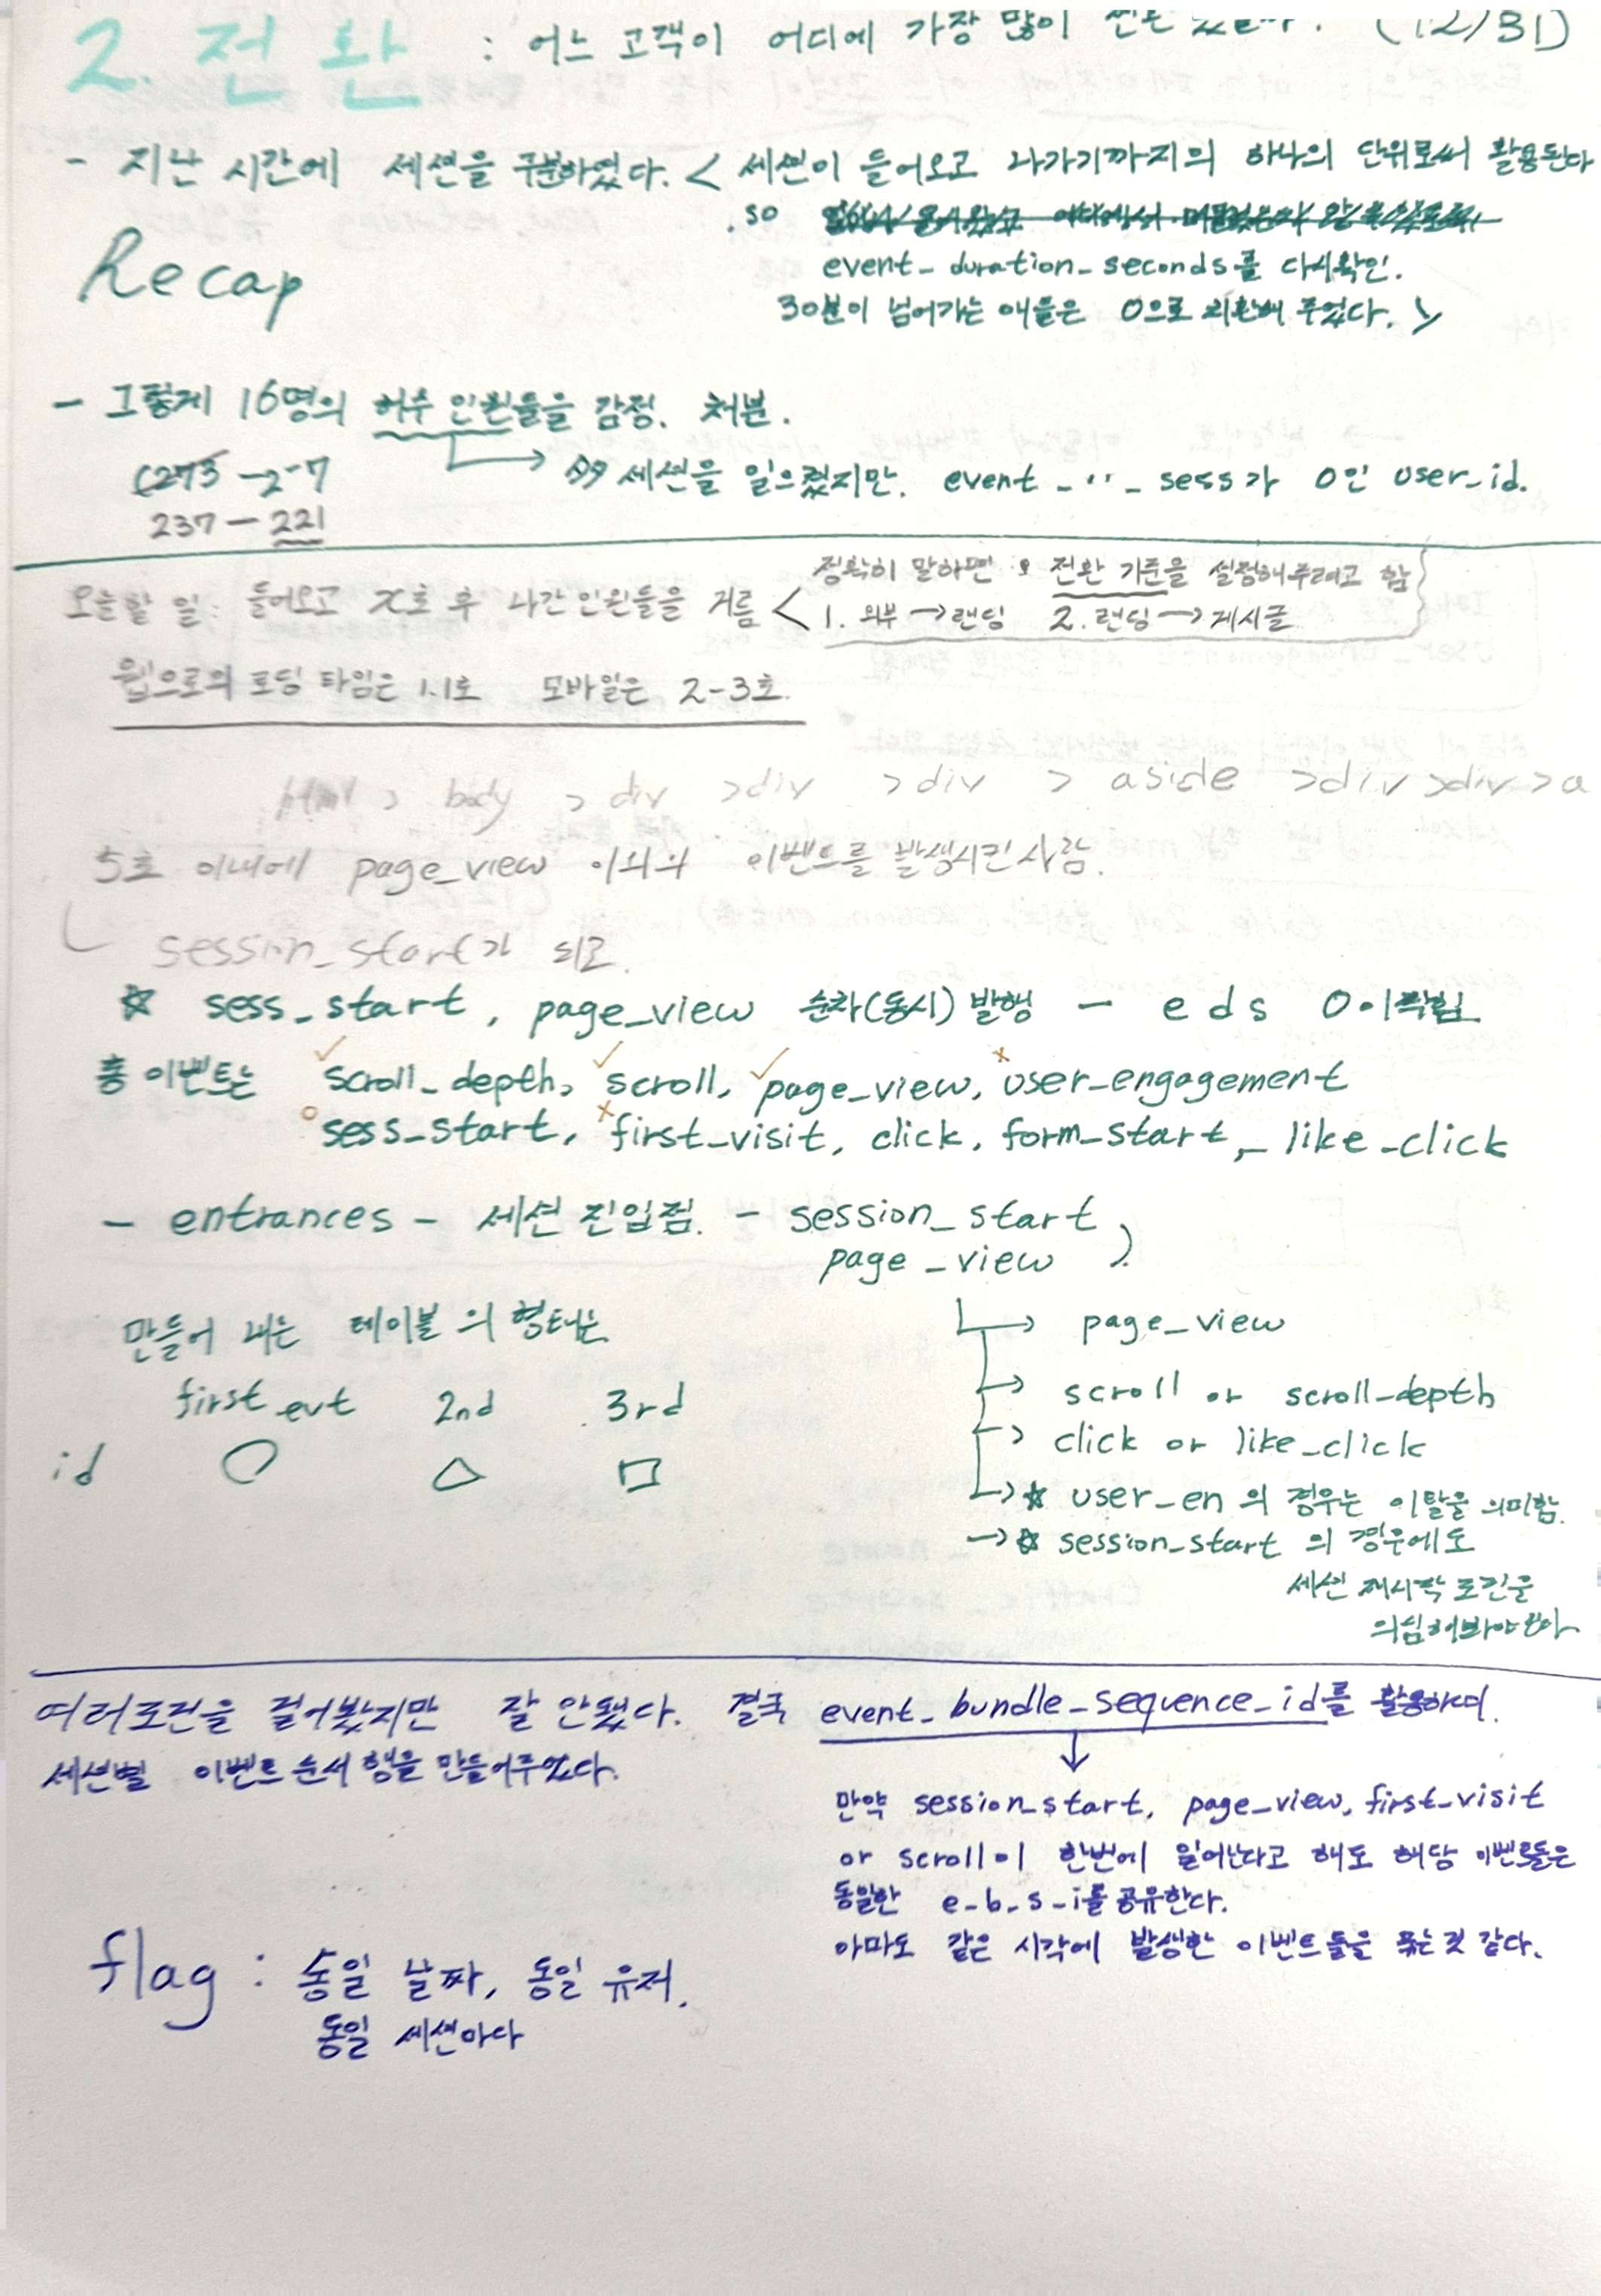 2. 전환 : 어느 고객이 어디에 가장 많이 (12/31)
- 지난 시간에 세션을 구분하였다. < 세션이 들어오고 나가기까지의 하나의 단위로써 활용된다
. so
event_duration_seconds를 다시확인.
Recap
30분이 넘어가는 애들은 0으로 치환해 주었다. >
- 그렇게 16명의 허수 인원들을 감정. 처분.
(273 → 2-7
→ 세션을 일으켰지만. event_.._sess가 0인 user_id.
237 - 221
정확히 말하면 전환 기준을 설정해주려고 함
오늘할 일: 들어오고 x초 후 나간 인원들을 거름 < 1. 외부 → 랜딩 2. 랜딩 → 게시글
웹으로의 로딩 타임은 1.1초 모바일은 2-3초.
html > body > div > div > div > aside > div > div > a
5초 이내에 page_view 이외의 이벤트를 발생시킨 사람.
session_start가 되로.
☆ sess_start, page_view 순차(동시) 발행 - eds 0이 찍힘
총 이벤트는 scroll_depth, scroll, page_view, user_engagement
sess_start, first_visit, click, form_start, like_click
- entrances - 세션 진입점. - session_start
page_view
만들어 내는 테이블의 형태는
→ page_view
first evt 2nd 3rd
→ scroll or scroll_depth
id ○ △ □
→ click or like_click
→ ☆ user_en 의 경우는 이탈을 의미함.
→ ☆ session_start 의 경우에도
세션 재시작 조건을
의심해봐야한다
여러조건을 걸어봤지만 잘 안됐다. 결국 event_bundle_sequence_id를 활용하여.
세션별 이벤트 순서 행을 만들어주었다.
↓
만약 session_start, page_view, first_visit
or scroll이 한번에 일어난다고 해도 해당 이벤트들은
동일한 e_b_s_i를 공유한다.
아마도 같은 시각에 발생한 이벤트들을 묶는 것 같다.
flag : 동일 날짜, 동일 유저,
동일 세션마다